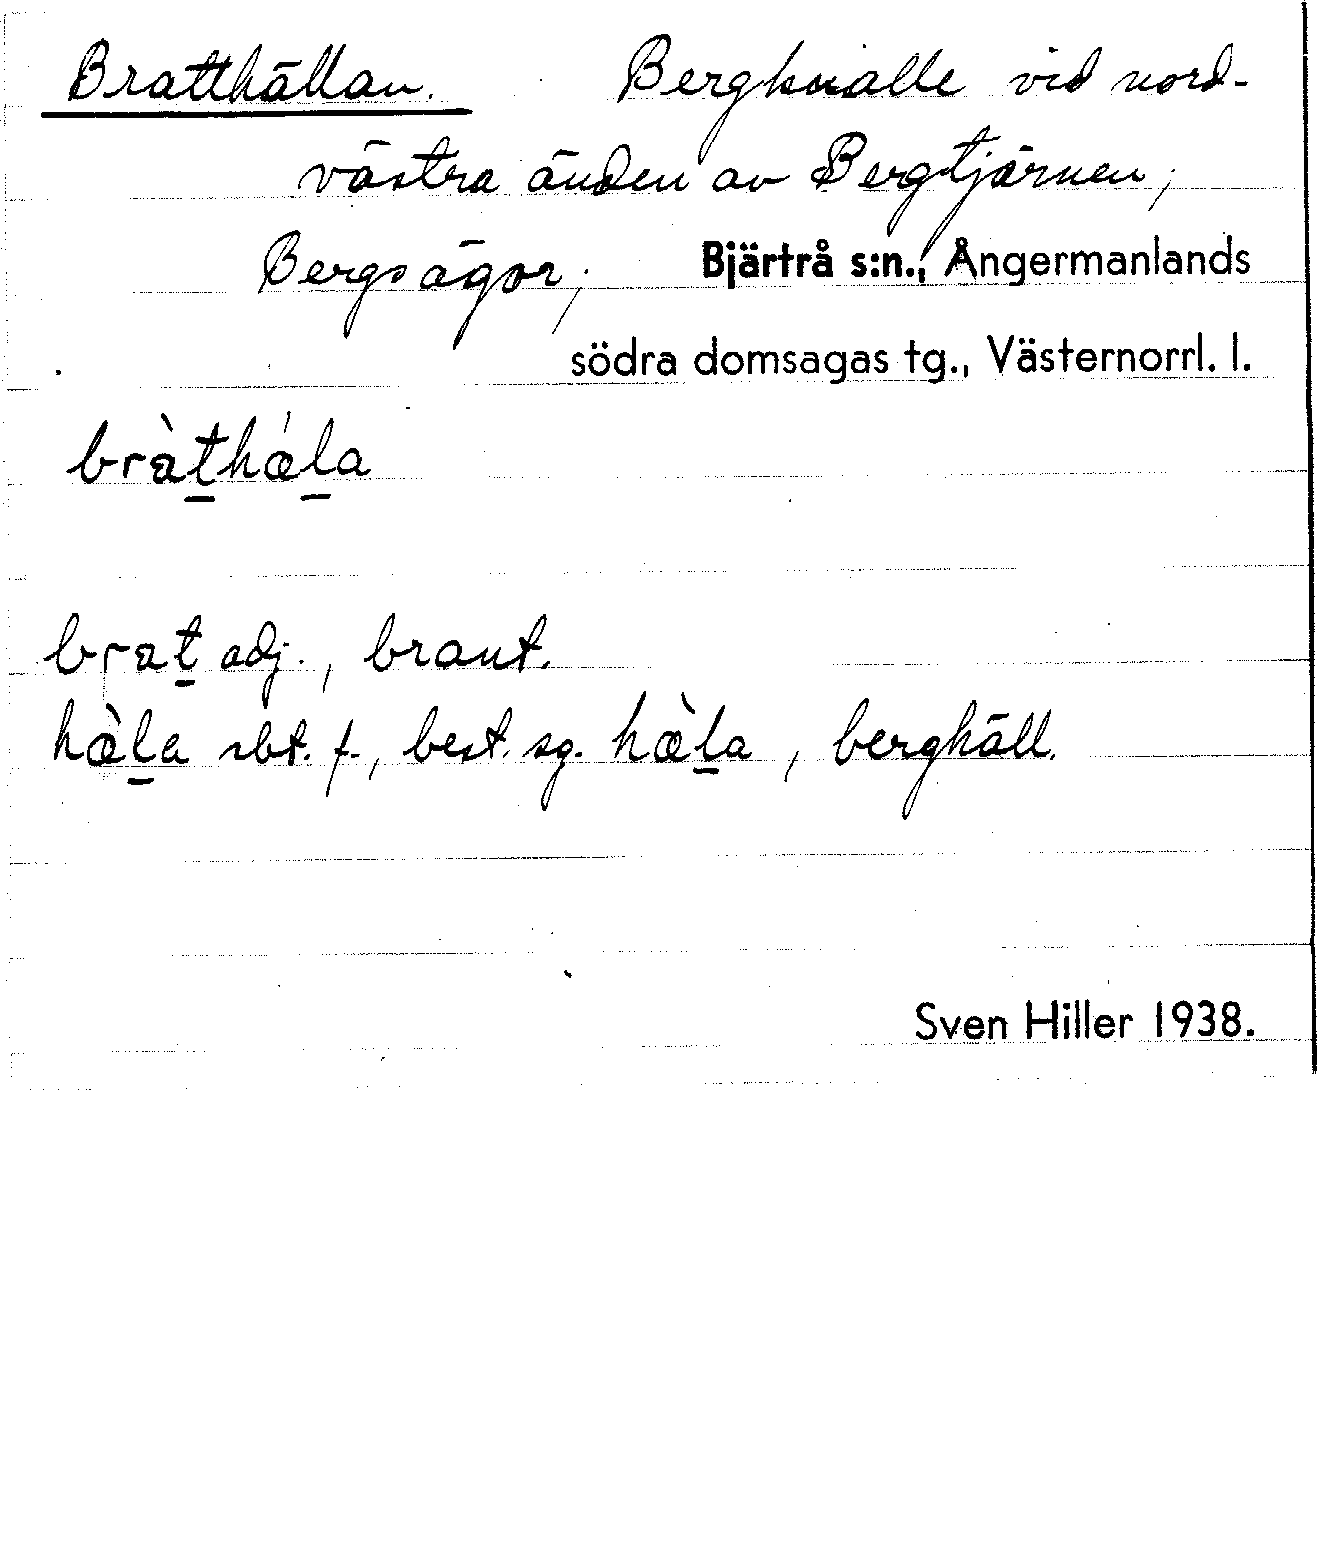 Bratthällan. Bergknalle vid nord-
västra änden av Bergtjärnen,
Bergs ägor, Bjärtrå s:n., Ångermanlands
södra domsagas tg., Västernorrl. l.
bràt̲hǽl̲a
brat̲ adj., brant.
hæ̀l̲a sbt. f., best. sg. hæ̀l̲a, berghäll.
Sven Hiller 1938.